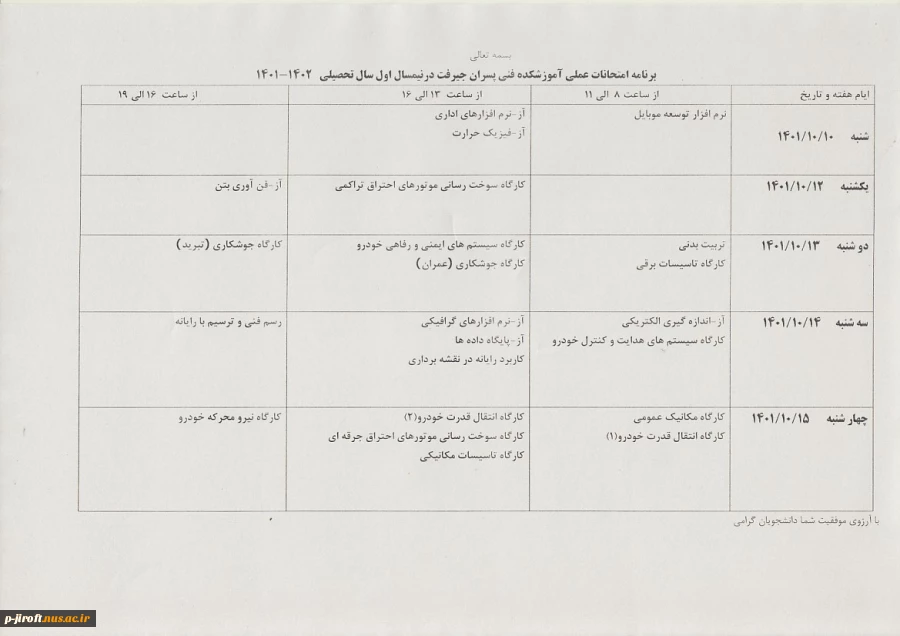 بسمه تعالی
برنامه امتحانات عملی آموزشکده فنی پسران جیرفت در نیمسال اول سال تحصیلی ۱۴۰۲-۱۴۰۱
ایام هفته و تاریخ
از ساعت ۸ الی ۱۱
از ساعت ۱۳ الی ۱۶
از ساعت ۱۶ الی ۱۹
شنبه ۱۴۰۱/۱۰/۱۰
نرم افزار توسعه موبایل
آز-نرم افزارهای اداری
آز-فیزیک حرارت
یکشنبه ۱۴۰۱/۱۰/۱۲
کارگاه سوخت رسانی موتورهای احتراق تراکمی
آز-فن آوری بتن
دو شنبه ۱۴۰۱/۱۰/۱۳
تربیت بدنی
کارگاه تاسیسات برقی
کارگاه سیستم های ایمنی و رفاهی خودرو
کارگاه جوشکاری (عمران)
کارگاه جوشکاری (تبرید)
سه شنبه ۱۴۰۱/۱۰/۱۴
آز-اندازه گیری الکتریکی
کارگاه سیستم های هدایت و کنترل خودرو
آز-نرم افزارهای گرافیکی
آز-پایگاه داده ها
کاربرد رایانه در نقشه برداری
رسم فنی و ترسیم با رایانه
چهار شنبه ۱۴۰۱/۱۰/۱۵
کارگاه مکانیک عمومی
کارگاه انتقال قدرت خودرو(۱)
کارگاه انتقال قدرت خودرو(۲)
کارگاه سوخت رسانی موتورهای احتراق جرقه ای
کارگاه تاسیسات مکانیکی
کارگاه نیرو محرکه خودرو
با آرزوی موفقیت شما دانشجویان گرامی
p-jiroft.nus.ac.ir